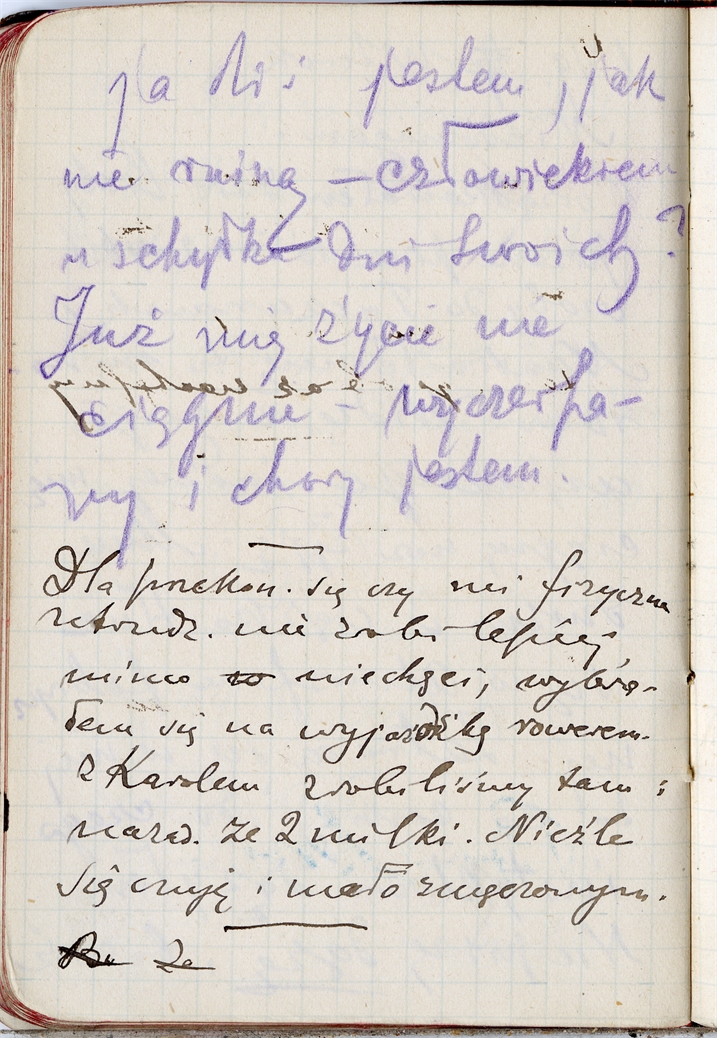 ja dziś jestem, jak
nie ruiną – człowiekiem
u schyłku dni swoich?
Już mię życie nie
ciągnie – wyczerpa-
ny i chory jestem.
Dla przekon. się czy mi fizyczna
nie zrobi lepiej
mimo to niechęci, wybra-
łem się na wyjażdżkę rowerem.
Z Karolem zrobiliśmy tam i
nazad. ze 2 milki. Nieźle
się czuję i mało zmęczonym.
Ze